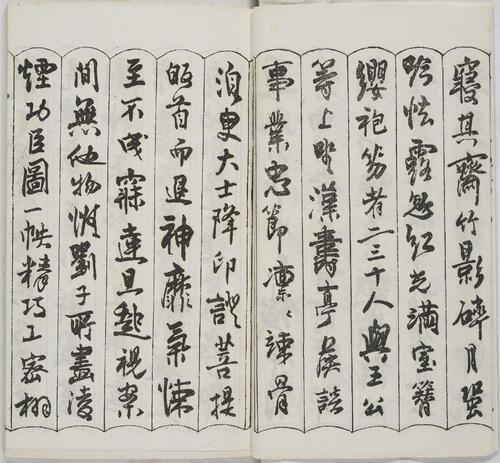 寢其齋竹影碎月蛩
吟怯露忽紅光滿室簪
纓袍笏者二三十人與王公
等上坐漢壽亭侯語
事業忠節凜〻竦骨
須臾大士降印證菩提
皈首而退神靡氣悚
至不成寐達旦起視案
間無他物惟劉子所畫凌
煙功臣圖一帙精巧工密栩